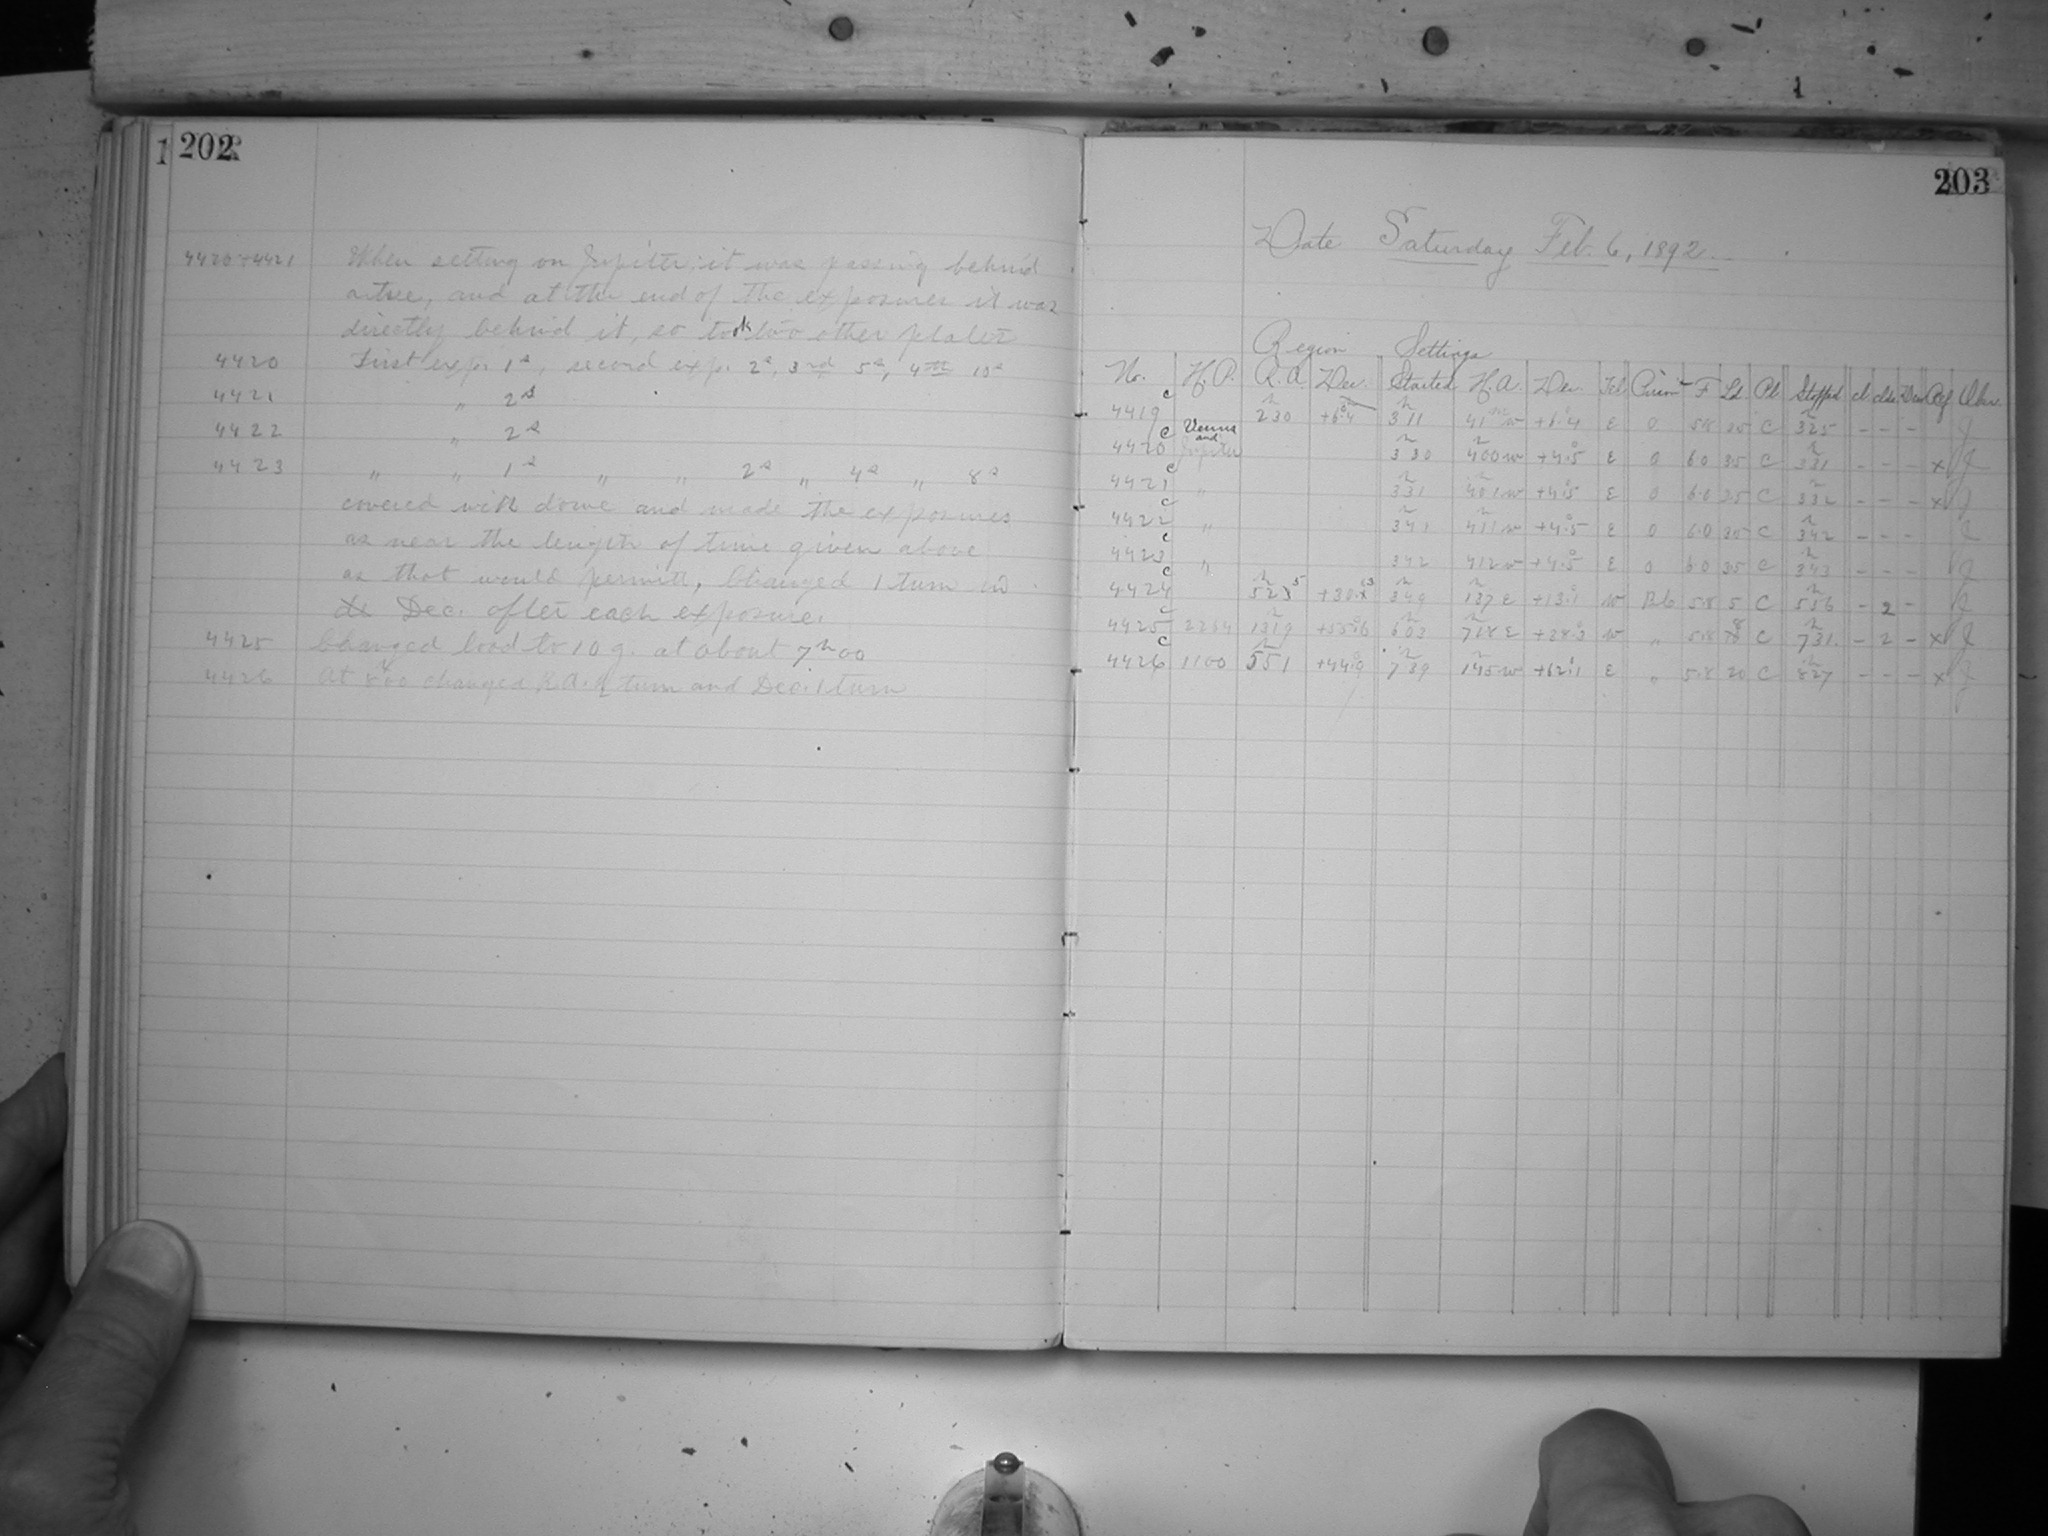 202
4420+4421 When setting on Jupiter, it was passing behind
a tree, and at the end of the exposures it was
directly behind it, so took two other plates
4420 First exp. 1s, second exp. 2s, 3rd 5s, 4th 10s
4421 " 2s
4422 " 2s
4423 " " 1s " " 2s " 4s " 8s
covered with dome and made the exposures
as near the length of time given above
as that would permit. Changed 1 turn in
Dec. after each exposure.
4425 Changed load to 10 g. at about 7h00
4426 At 8h00 changed R.A. ½ turn and Dec. 1 turn
203
Date Saturday Feb. 6, 1892.
Region Settings
No. H.P. R.A. Dec. Started H.A. Dec. Tel. F Ld. Pl. Stopped cl. Obsr.
C4419 2h30 +6°.4 3h11 41m w +6°.4 E 0 5.8 35 C 3h25 - - - J
C4420 Venus and Jupiter 3h30 4h00 w +4°.5 E 0 6.0 35 C 3h31 - - - x J
C4421 " 3h31 4h01 w +4°.5 E 0 6.0 35 C 3h32 - - - x J
C4422 " 3h41 4h11 w +4°.5 E 0 6.0 35 C 3h42 - - - J
C4423 " 3h42 4h12 w +4°.5 E 0 6.0 35 C 3h43 - - - J
C4424 3h49 1h37 E +13°.1 w 5.8 5 C 5h56 - 2 - J
C4425 2264 13h19 +55°.6 6h03 7h18 E +28°.3 w " 5.8 C 7h31. - 2 - x J
C4426 1100 5h51 +44°.9 7h39 1h45 w +62°.1 E " 5.8 20 C 8h27 - - - x J